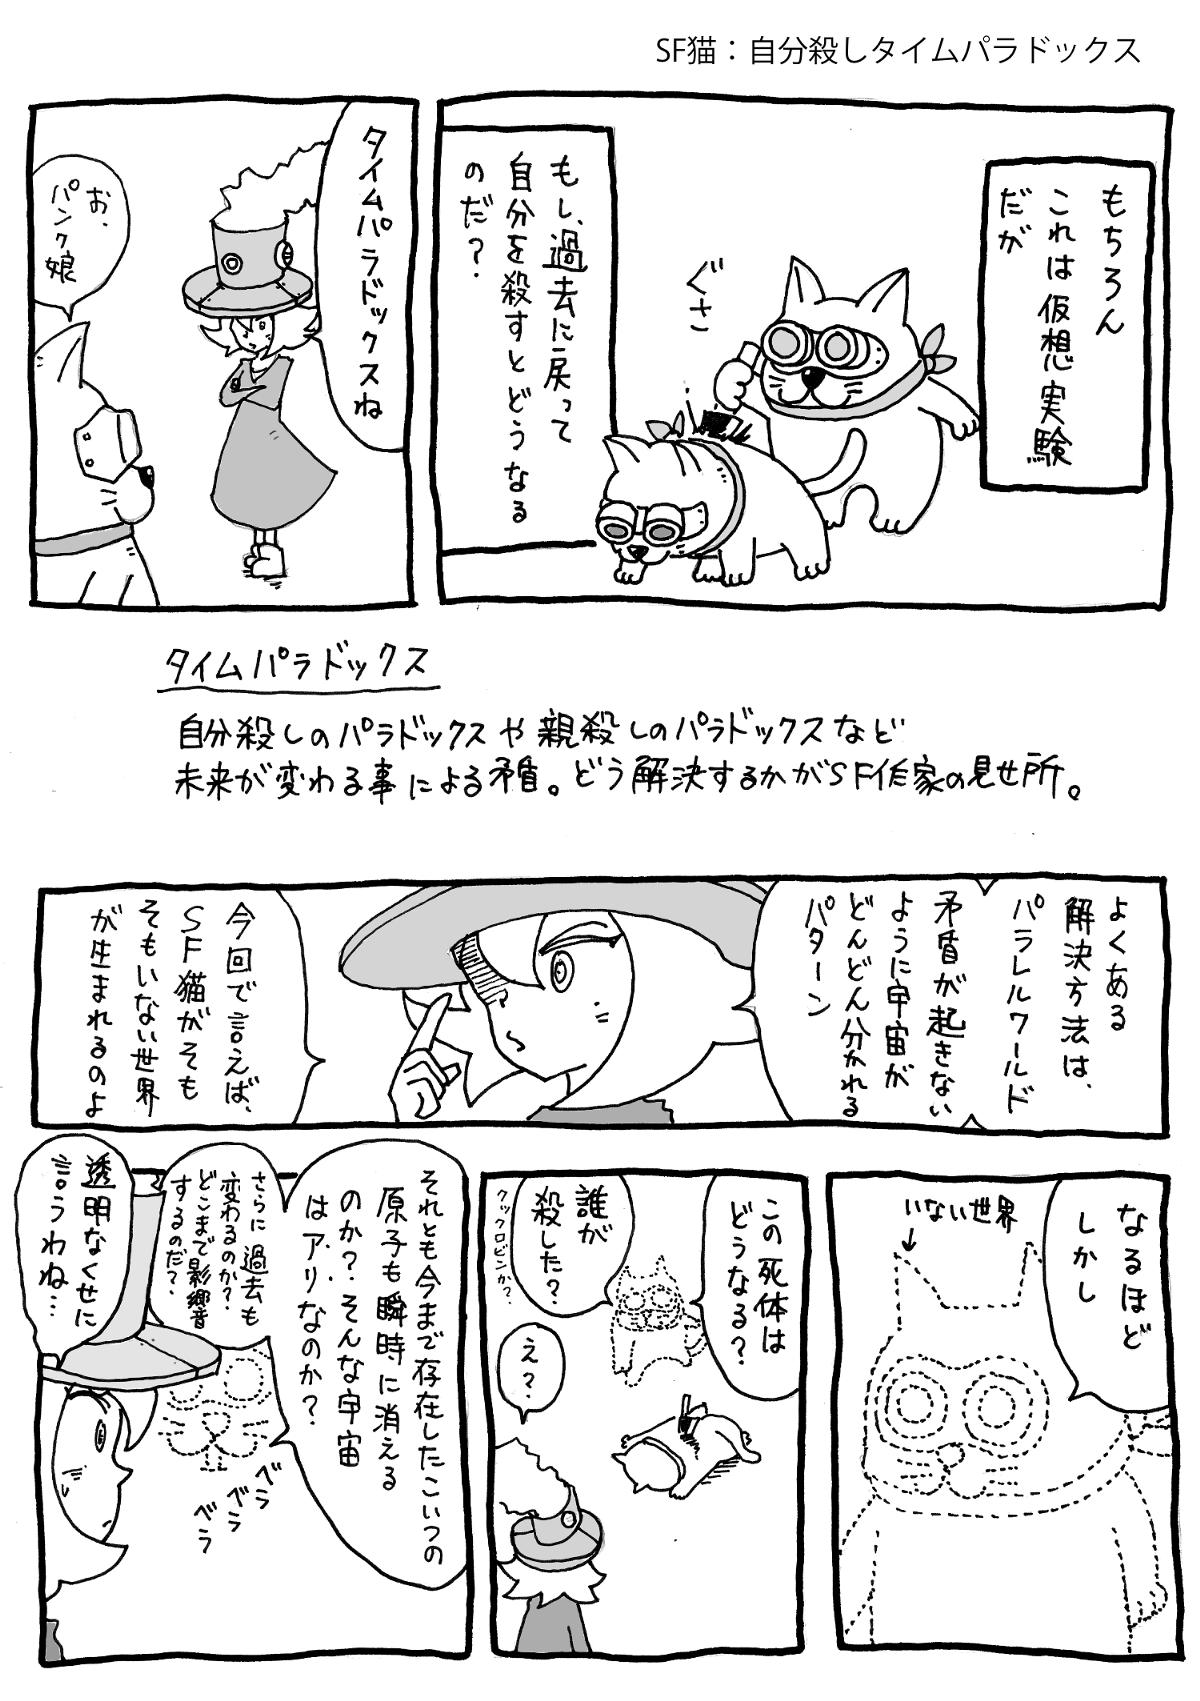 SF猫：自分殺しタイムパラドックス
もちろん
これは仮想実験
だが
ぐさ
もし、過去に戻って
自分を殺すとどうなる
のだ？
タイムパラドックスね
お、
パンク娘
タイムパラドックス
自分殺しのパラドックスや親殺しのパラドックスなど
未来が変わる事による矛盾。どう解決するかがSF作家の見せ所。
よくある
解決方法は、
パラレルワールド
矛盾が起きない
ように宇宙が
どんどん分かれる
パターン
今回で言えば、
SF猫がそも
そもいない世界
が生まれるのよ
なるほど
しかし
いない世界
この死体は
どうなる？
誰が
殺した？
クックロビンか？
え？
それとも今まで存在したこいつの
原子も瞬時に消える
のか？そんな宇宙
はアリなのか？
さらに過去も
変わるのか？
どこまで影響
するのだ？
ベラ
ベラ
ベラ
透明なくせに
言うわね…